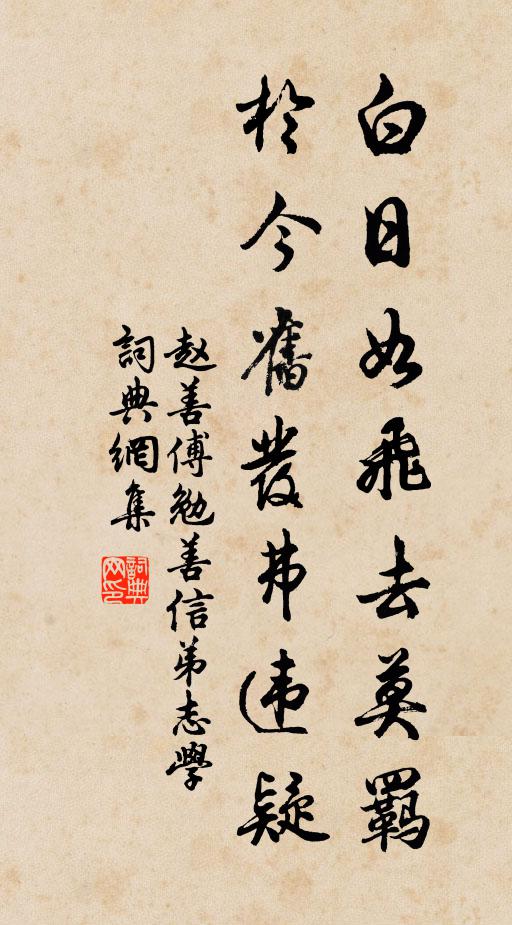 白日如飛去莫羈
於今舊發弗违疑
赵善傅勉善信弟志學
詞典網集
詞典网印